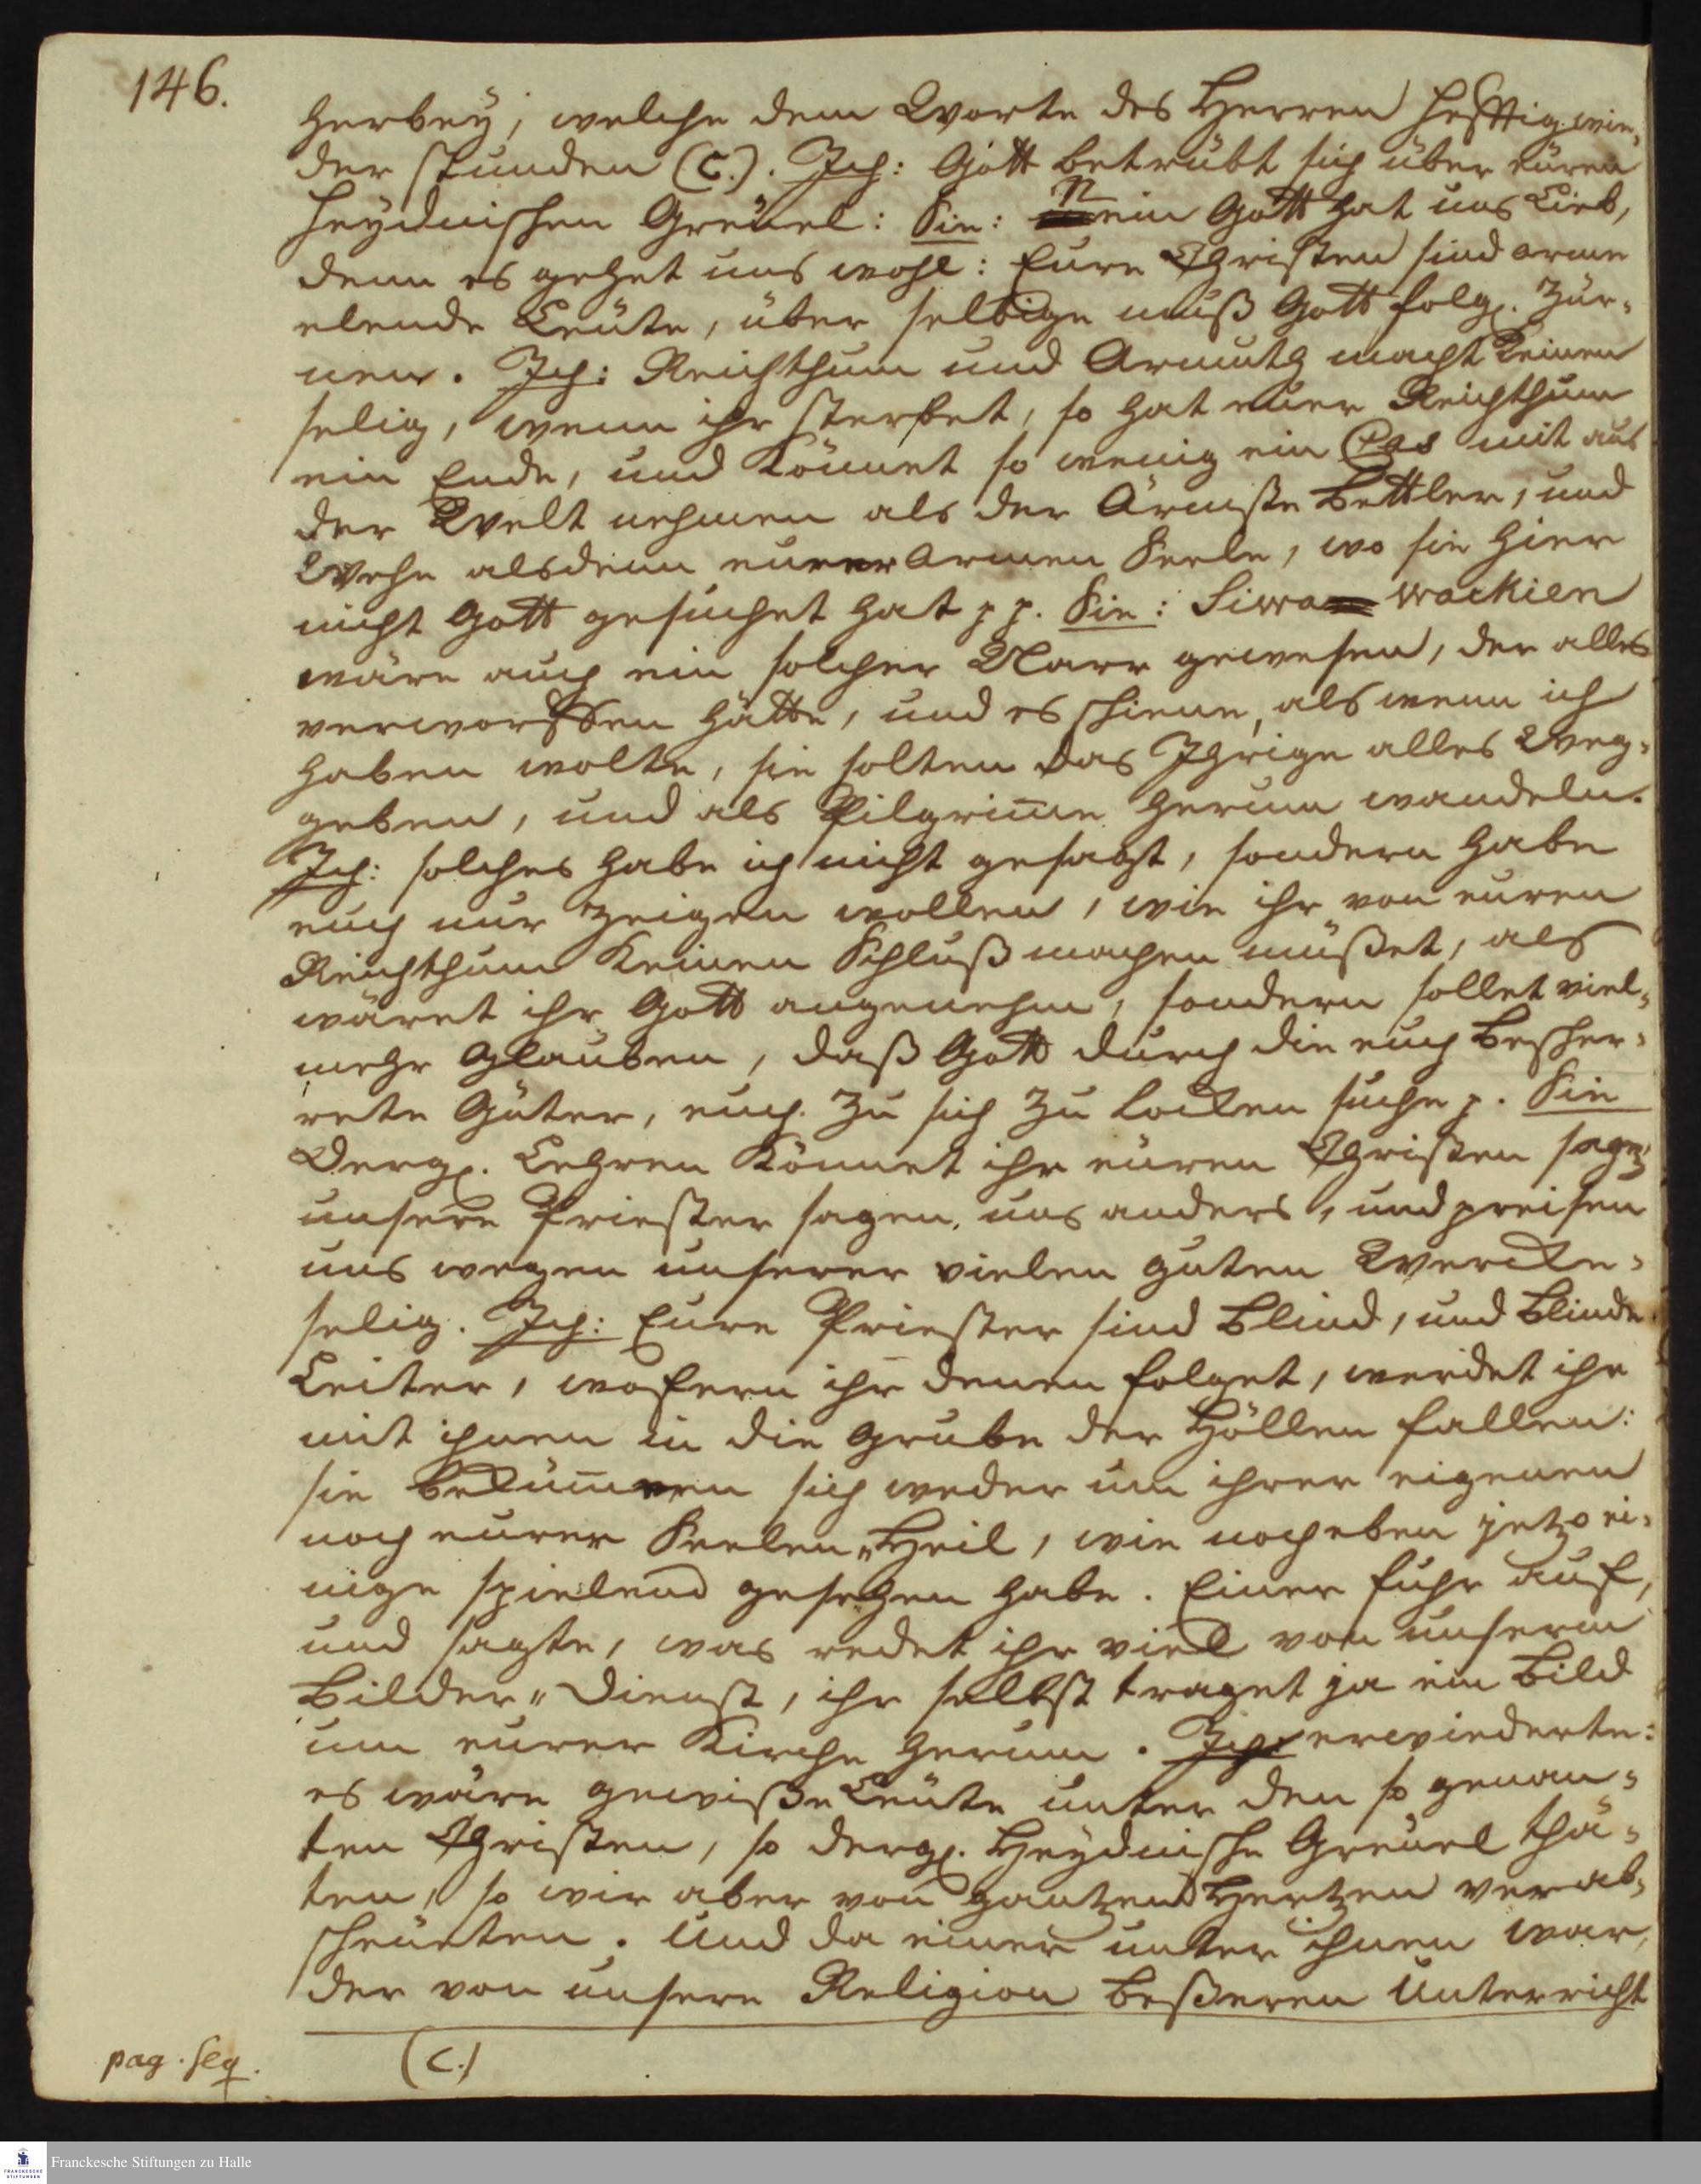 146.
herbey, welche dem Worte des Herren hefftig wie„
der stunden (C.). Ich: Gott betrübt sich über eüren
heydnischen Greüel: Sie: Nein Gott hat uns Lieb,
denn es gehet uns wohl: Eure Christen sind arme
elende Leüte, über selbige muß Gott folgl. Zür„
nen. Ich: Reichthum und Armuth macht Keinen
selig, wenn ihr sterbet, so hat euer Reichthum
ein Ende, und Könnet so wenig ein Cas mit aus
der Welt nehmen als der Ärmste Bettler, und
Wehe alsdenn eurer Armen Seele, wo sie hier
nicht Gott gesuchet hat pp. Sie: Siwa wackien
wäre auch ein solcher Narr gewesen, der alles
verworffen hätte, und es schiene, als wenn ich
haben wolte, sie solten das Ihrige alles Weg„
geben, und als Pilgrim̅e herum wandeln.
Ich: solches habe ich nicht gesagt, sondern habe
euch nur zeigen wollen, wie ihr von euren
Reichthum Keinen Schluß machen müßet, als
wäret ihr Gott angenehm, sondern sollet viel„
mehr Glauben, daß Gott durch die euch Bescher„
rete Güter, euch zu sich zu Locken suche p. Sie
Dergl. Lehren Könnet ihr euren Christen sagen,
unsere Priester sagen uns anders, und preisen
uns wegen unserer vielen guten Wercke„
selig. Ich: Eure Priester sind Blind, und Blinde
Leiter, wofern ihr denen folget, werdet ihr
mit ihnen in die Grube der Höllen fallen:
sie Beküm̅ern sich weder um ihrer eigenen
noch eurer Seelen„Heil, wie noch eben jetzo ei„
nige spielend gesehen habe. Einer fuhr auf,
und sagte, was redet ihr viel von unserm
Bilder„Dienst, ihr selbst traget ja ein Bild
um eurer Kirche herum. Ich erwiederte:
es wäre gewiße Leüte unter den so genan„
ten Christen, so dergl. Heydnische Greüel thä„
ten, so wir aber von gantzen Hertzen verab„
scheüeten. Und da einer unter ihnen war,
der von unsere Religion Beßeren Unterricht
(C.)
pag. seq.
Franckesche Stiftungen zu Halle
FRANCKESCHE
STIFTUNGEN